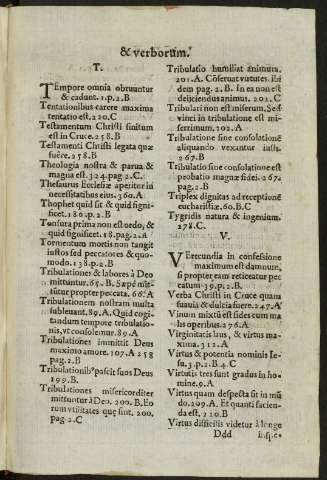 & verborum.
T.
TEmpore omnia obruuntur
& cadunt. 1.p.2.B
Tentationibus carere maxima
tentatio est. 220.C
Testamentum Christi finitum
est in Cruce. 258.B
Testamenti Christi legata quæ
fuêre. 258.B
Theologia nostra & parua &
magna est. 324.pag 2.C.
Thesaurus Ecclesiæ aperitur in
necessitatibus eius. 360.A
Thophet quid sit & quid signi-
ficet. 180.p.2.B
Tonsura prima non est ordo, &
quid significet. 18.pag.2.A
Tormentum mortis non tangit
iustos sed peccatores & quo-
modo. 138.p.2.B
Tribulationes & labores à Deo
mittuntur. 65.B. Sæpè mit-
tûtur propter peccata. 66.A
Tribulationem nostram multa
subleuant. 89.A. Quid cogi-
tandum tempore tribulatio-
nis, vt consolemur. 89.A
Tribulationes immittit Deus
maximo amore. 107.A 258
pag.2.B
Tribulationibꝰ pascit suos Deus
199.B.
Tribulationes misericorditer
mittuntur à Deo. 200.B. Eo
rum vtilitates quę sint. 200.
pag.2.C
Tribulatio humiliat animum.
201.A. Cõseruat virtutes. ibi
dem pag.2.B. In ea non est
deijciendus animus. 202.C
Tribulari non est miserum, Sed
vinci in tribulatione est mi-
serrimum. 202.A
Tribulatione sine consolatione
aliquando vexantur iusti.
267.B
Tribulatio sine consolatione est
probatio magnæ fidei. 267.
pag.2.B
Triplex dignitas ad receptionẽ
eucharistiæ. 60.B.C
Tygridis natura & ingenium.
278.C.
V.
VErecundia in confessione
maximum est damnum,
si propter eam reticeatur pec
catum. 39.p.2.B.
Verba Christi in Cruce quam
suauia & dulcia fuere. 247.A
Vinum mixtũ est fides cum ma
lis operibus. 276.A.
Virginitatis laus, & virtus ma-
xima. 312.A
Virtus & potentia nominis Ie-
su. 3.p.2.B.4.C
Virtutis tres sunt gradus in ho-
mine. 9.A.
Virtus quam despecta sit in mũ
do. 209.A. Et quanti facien-
da est. 210.B
Virtus difficilis videtur à longe
Ddd insp.c.